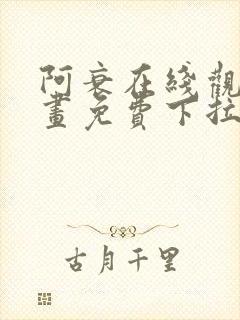 阿衰在綫觀
畫免費下拉
古月千里